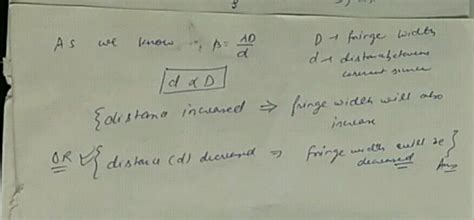 As we know, β = λD/d
D → fringe width
d → distance between
d ∝ D
{distance increased ⇒ fringe width will also
increase
OR {distance (d) decreased ⇒ fringe width will be
decreased}
Ans